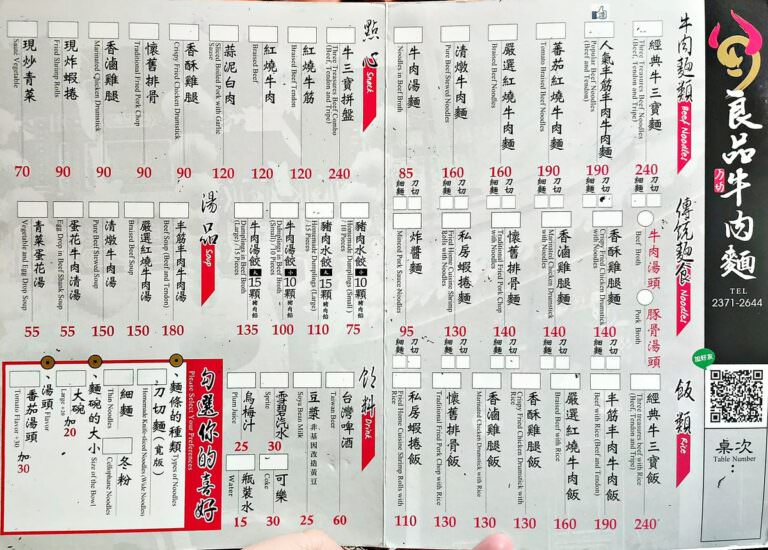 良品牛肉麵
刀切
TEL
2371-2644
加好友
桌次
Table Number
牛肉麵類 Beef Noodles
經典牛三寶麵
Three Treasures Beef Noodles
(Beef, Tendon and Tripe)
240
人氣半筋半肉牛肉麵
Popular Beef Noodles
(Beef and Tendon)
190
細麵 刀切
蕃茄紅燒牛肉麵
Tomato Braised Beef Noodles
190
細麵 刀切
嚴選紅燒牛肉麵
Braised Beef Noodles
160
細麵 刀切
清燉牛肉麵
Pure Beef Stewed Noodles
160
細麵 刀切
牛肉湯麵
Noodles in Beef Broth
85
細麵 刀切
傳統麵食 Noodles
牛肉湯頭
Beef Broth
豚骨湯頭
Pork Broth
香酥雞腿麵
Crispy Fried Chicken Drumstick
with Noodles
140
細麵 刀切
香滷雞腿麵
Marinated Chicken Drumstick
with Noodles
140
細麵 刀切
懷舊排骨麵
Traditional Fried Pork Chop
with Noodles
140
細麵 刀切
私房蝦捲麵
Fried Home Cuisine Shrimp
Rolls with Noodles
130
細麵 刀切
炸醬麵
Minced Pork Sauce Noodles
95
細麵 刀切
飯類 Rice
經典牛三寶飯
Three treasures beef with Rice
(Beef, Tendon and Tripe)
240
半筋半肉牛肉飯
Beef with Rice (Beef and Tendon)
190
嚴選紅燒牛肉飯
Braised Beef with Rice
160
香酥雞腿飯
Crispy Fried Chicken Drumstick with Rice
130
香滷雞腿飯
Marinated Chicken Drumstick with Rice
130
懷舊排骨飯
Traditional Fried Pork Chop with Rice
130
私房蝦捲飯
Fried Home Cuisine Shrimp Rolls with
Rice
110
點心 Snack
牛三寶拼盤
Three Treasures Beef Combo
(Beef, Tendon and Tripe)
240
紅燒牛筋
Braised Beef Tendon
120
紅燒牛肉
Braised Beef
120
蒜泥白肉
Sliced Boiled Pork with Garlic
Sauce
120
香酥雞腿
Crispy Fried Chicken Drumstick
90
懷舊排骨
Traditional Fried Pork Chop
90
香滷雞腿
Marinated Chicken Drumstick
90
現炸蝦捲
Fried Shrimp Rolls
90
現炒青菜
Sauté Vegetable
70
豬肉水餃 小 10顆 豬肉餡
Homemade Dumplings (Small)
/ 10 Pieces
75
豬肉水餃 大 15顆 豬肉餡
Homemade Dumplings (Large)
/ 15 Pieces
110
牛肉湯餃 小 10顆 豬肉餡
Dumplings in Beef Broth
(Small) / 10 Pieces
100
牛肉湯餃 大 15顆 豬肉餡
Dumplings in Beef Broth
(Large) / 15 Pieces
135
湯品 Soup
半筋半肉牛肉湯
Beef Soup (Beef and Tendon)
180
嚴選紅燒牛肉湯
Braised Beef Soup
150
清燉牛肉湯
Pure Beef Stewed Soup
150
蛋花牛肉清湯
Egg Drop in Beef Shank Soup
55
青菜蛋花湯
Vegetable and Egg Drop Soup
55
飲料 Drink
台灣啤酒
Taiwan Beer
60
豆漿 非基因改造黃豆
Soya Bean Milk
25
雪碧汽水
Sprite
30
可樂
Coke
30
烏梅汁
Plum Juice
25
瓶裝水
Water
15
勾選你的喜好
Please Select Your Preferences
、麵條的種類 Types of Noodles
刀切麵(寬版)
Homemade Knife-sliced Noodles (Wide Noodles)
細麵
Thin Noodles
冬粉
Cellophane Noodles
、麵碗的大小 Size of the Bowl
大碗 加20
Large +20
、湯頭 Flavor
番茄湯頭 加30
Tomato Flavor +30